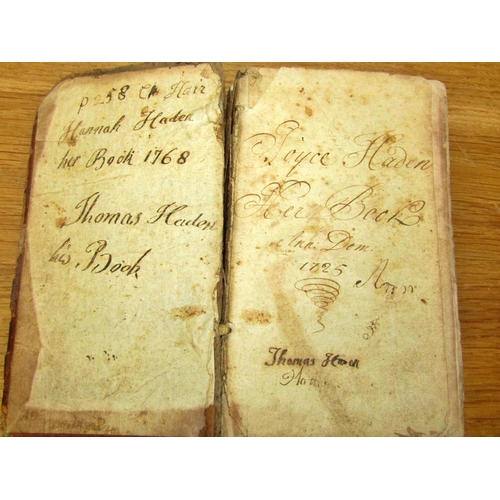 p258
Hannah Haden
her Book 1768
Thomas Haden
his Book
Joyce Haden
Her Book
Dom
1725
Thomas